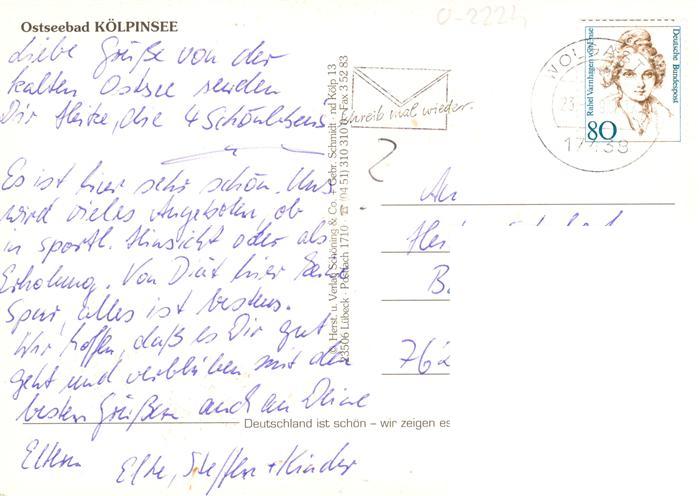 Ostseebad KÖLPINSEE
Liebe Grüße von der
kalten Ostsee senden
Dir Heike, die 4 Schönlebens
Es ist hier sehr schön. Uns
wird vieles angeboten, ob
in sportl. Hinsicht oder als
Erholung. Von Diät hier keine
Spur, alles ist bestens.
Wir hoffen, daß es Dir gut
geht und verbleiben mit den
besten Grüßen auch an Deine
Eltern
Elke, Steffen + Kinder
Herst. u. Verlag Schöning & Co. + Gebr. Schmidt
23506 Lübeck · Postfach 1710 · ☎ (04 51) 310 310 · Fax 3 52 83
Deutschland ist schön – wir zeigen es
0-2224
schreib mal wieder.
WOLGAST
23.
17438
Rahel Varnhagen von Ense
Deutsche Bundespost
80
An
Hei
B.
762